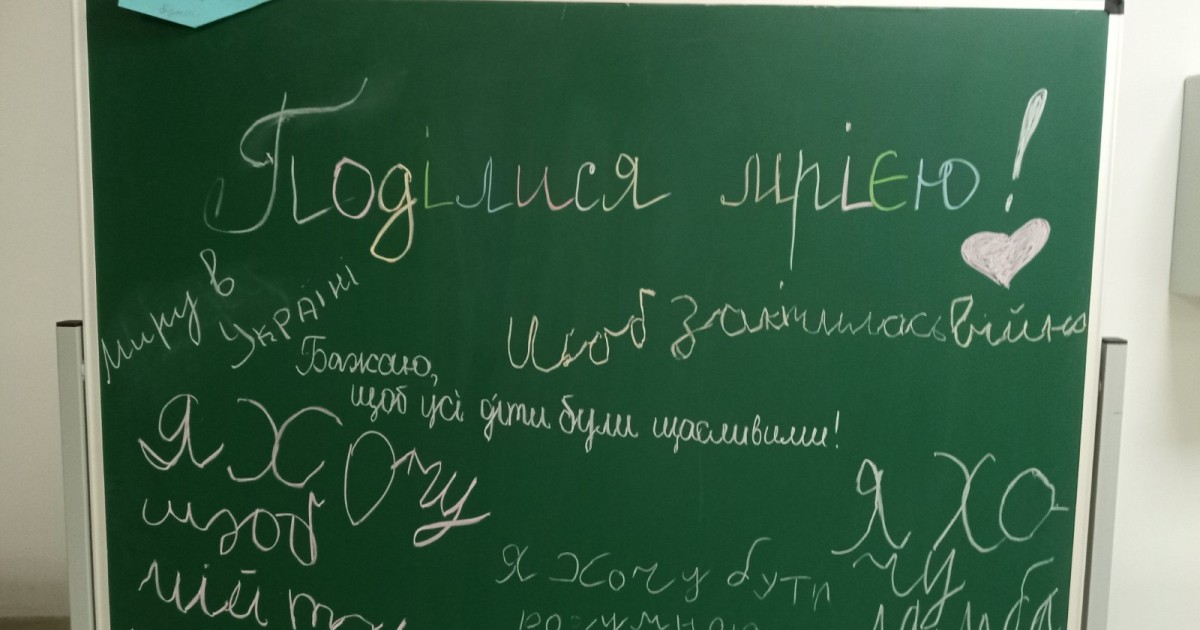 Поділися мрією!
Миру в
Україні
Щоб закінчилась війна
Бажаю,
щоб усі діти були щасливими!
я хочу
щоб
мій
я хочу бути
розумною
я хо
чу